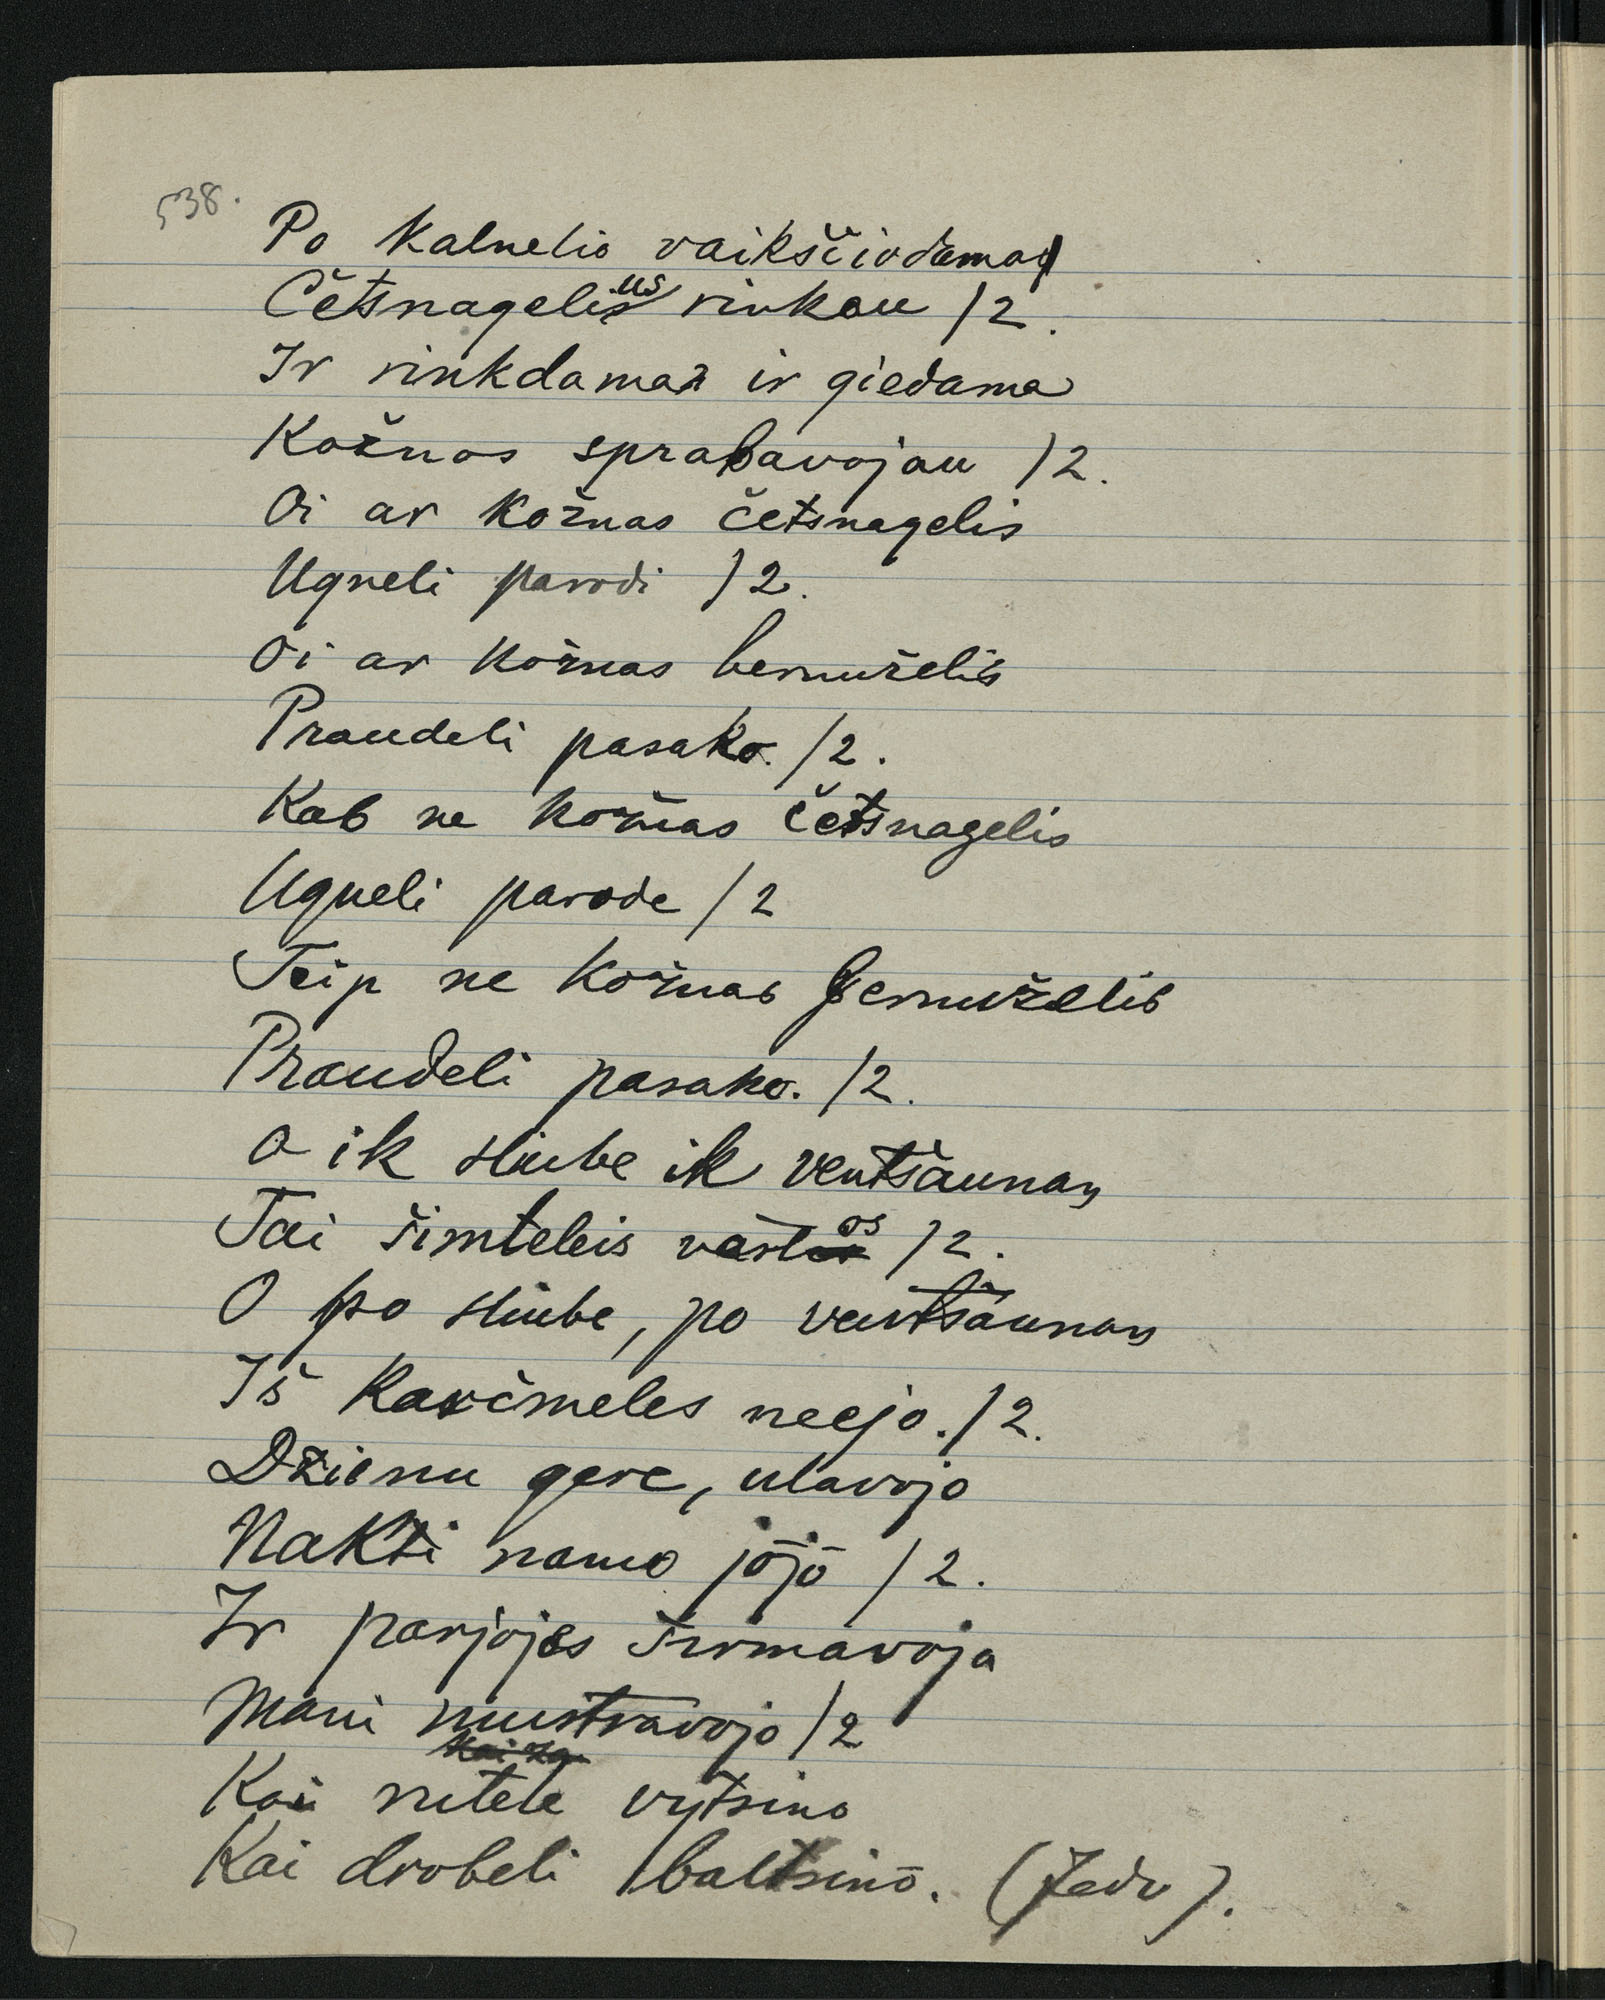 538.
Po kalnelio vaikščiodama
Četsnagelius rinkau /2.
Ir rinkdama ir giedama
Kožnos sprabavojau /2.
Oi ar kožnas četsnagelis
Ugneli parodi /2.
Oi ar kožnas bernuželis
Praudeli pasako. /2.
Kab ne kožnas četsnagelis
Ugneli parode /2
Teip ne kožnas bernuželis
Praudeli pasako. /2.
O ik sliube ik ventšaunan
Tai šimteleis vārtos /2.
O po sliube, po ventšaunan
Iš karčmeles neejo. /2.
Džienu gere, ulavojo
Nakti namo jōjō /2.
Ir parjojes šturmavoja
Mani mustravojo /2
Kai rutele vytsino
Kai drobeli baltsinō. (Jadv).